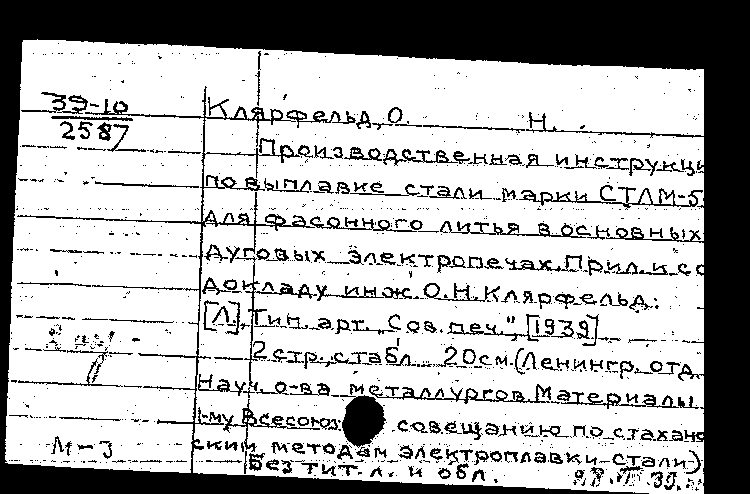 39-10
2587
Клярфельд, О. Н.
Производственная инструкци
по выплавке стали марки СТЛМ-5
для фасонного литья в основных
дуговых электропечах. Прил. к со
докладу инж. О.Н. Клярфельд:
[Л], Тип. арт. „Сов. печ.", [1939]
2 стр., с табл. 20см. (Ленингр. отд.
Науч. о-ва металлургов. Материалы
1-му Всесоюз совещанию по стахано
ским методам электроплавки стали)
Без тит. л. и обл.
М-3